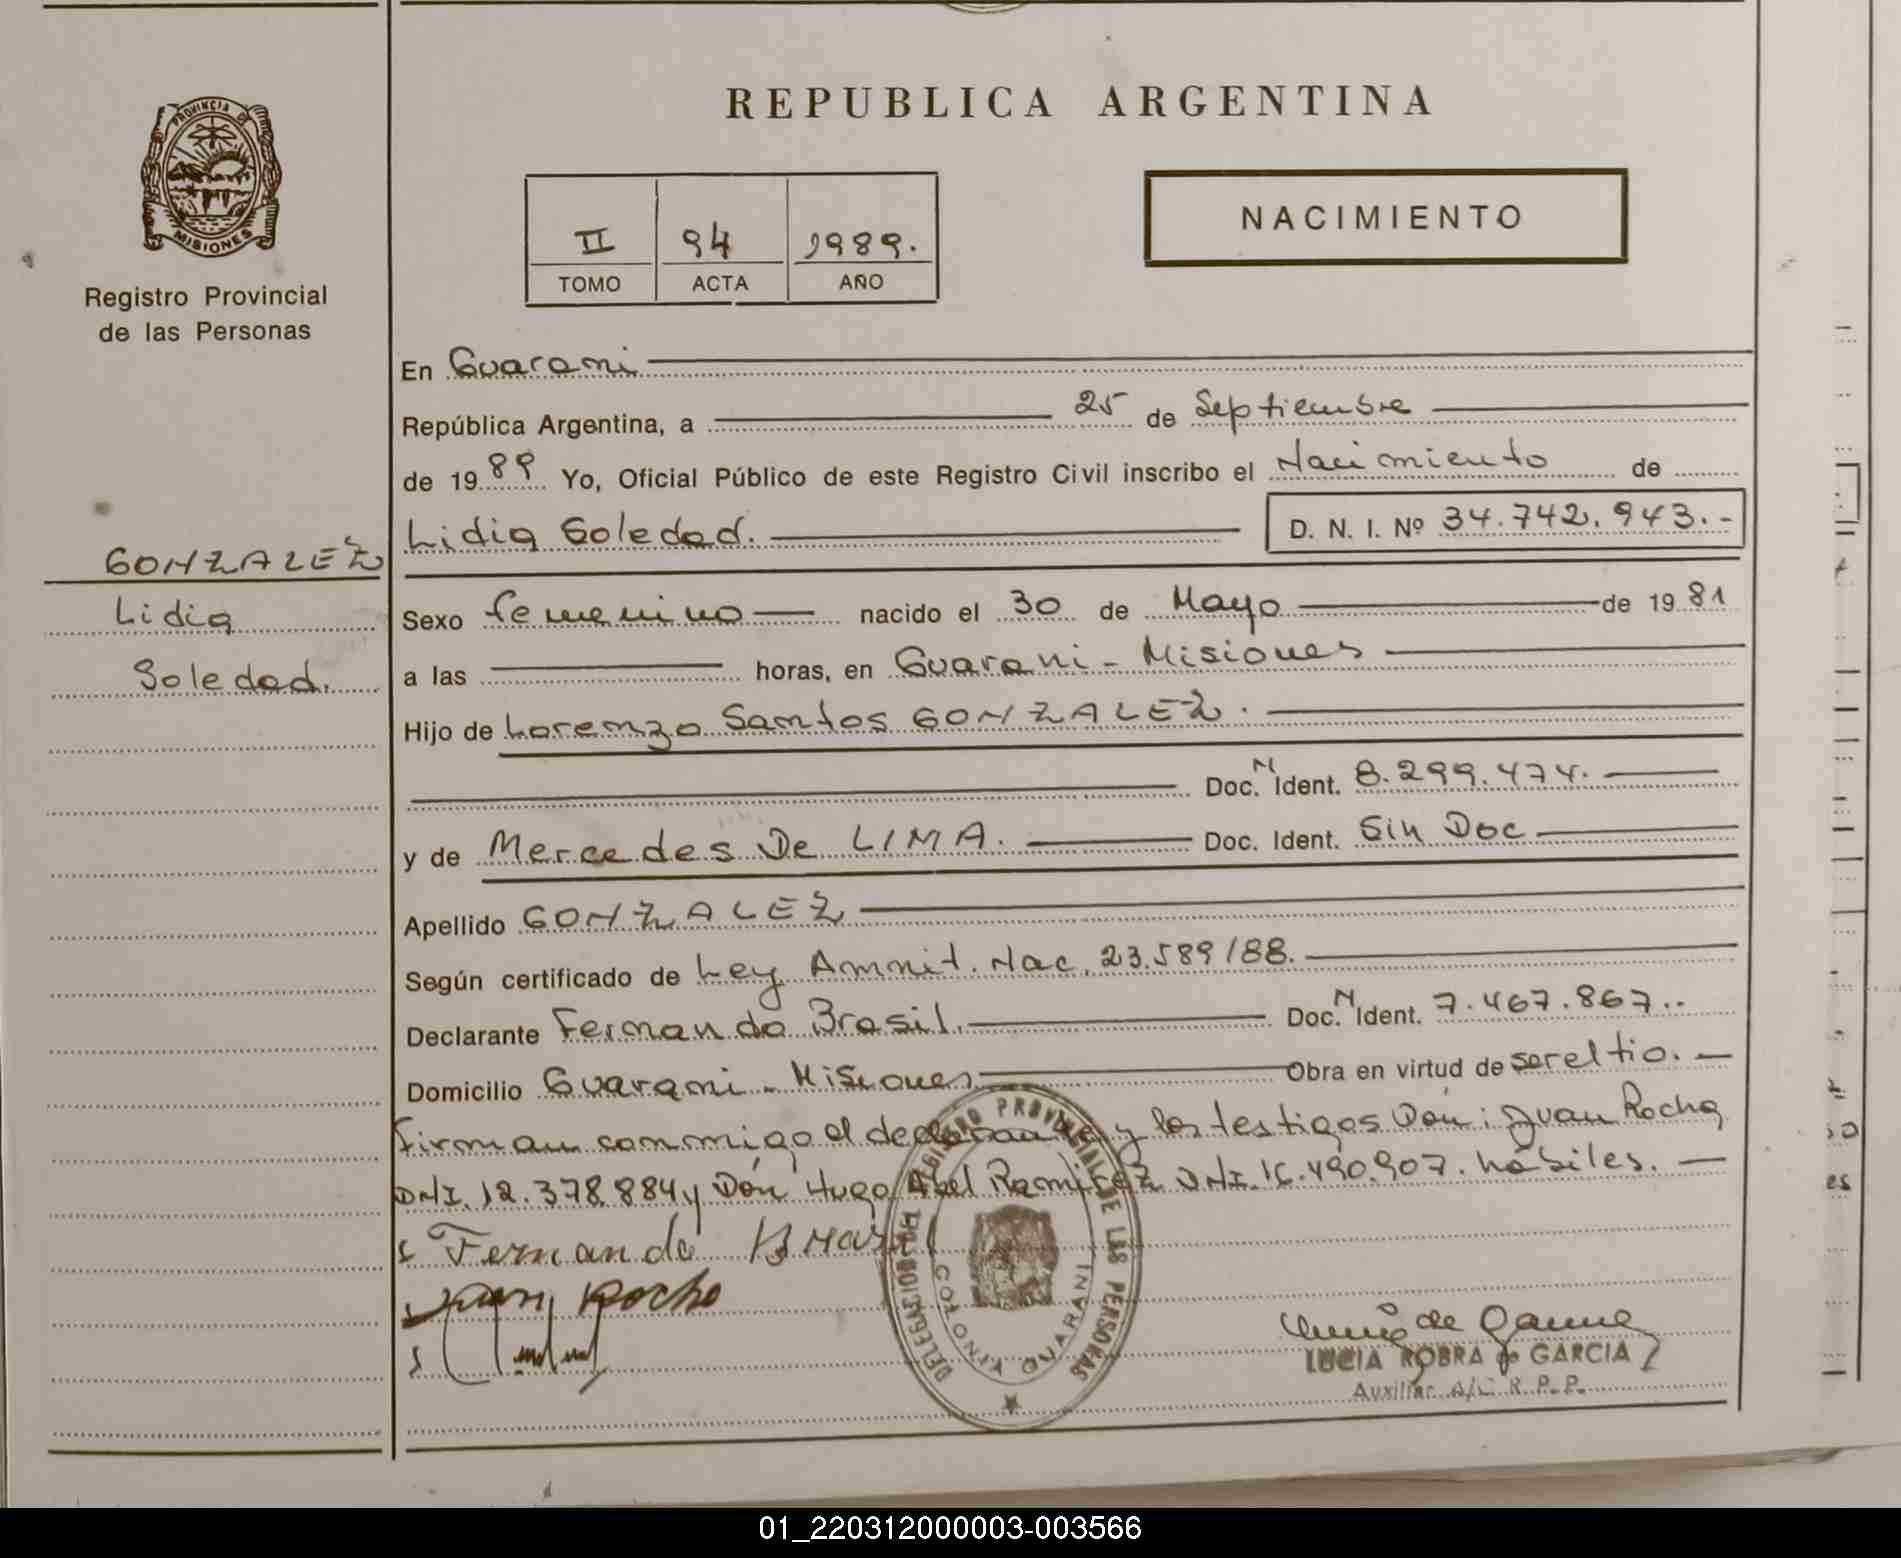 PROVINCIA DE
MISIONES
Registro Provincial
de las Personas
GONZALEZ
Lidia
Soledad.
REPUBLICA ARGENTINA
II 94 1989.
TOMO ACTA AÑO
NACIMIENTO
En Guarani
República Argentina, a 25 de Septiembre
de 1989 Yo, Oficial Público de este Registro Civil inscribo el Nacimiento de
Lidia Soledad. D. N. I. Nº 34.742.943.-
Sexo femenino nacido el 30 de Mayo de 1981
a las horas, en Guarani - Misiones
Hijo de Lorenzo Santos GONZALEZ.
Doc. N Ident. 8.299.474.
y de Mercedes De LIMA. Doc. Ident. Sin Doc
Apellido GONZALEZ
Según certificado de Ley Amnit. Nac. 23.589/88.
Declarante Fernando Brasil. Doc. N Ident. 7.467.867..
Domicilio Guarani - Misiones Obra en virtud de ser el tio.
Firman conmigo el declarante y los testigos Don: Juan Rocha
DNI. 12.378.884 y Don Hugo Abel Ramirez DNI. 16.490.907. hábiles.
Fernando Brasil
Juan Rocho
DELEGACION REGISTRO PROVINCIAL DE LAS PERSONAS
GUARANI
LUCIA ROBRA de GARCIA
Auxiliar A/C R.P.P.
01_220312000003-003566